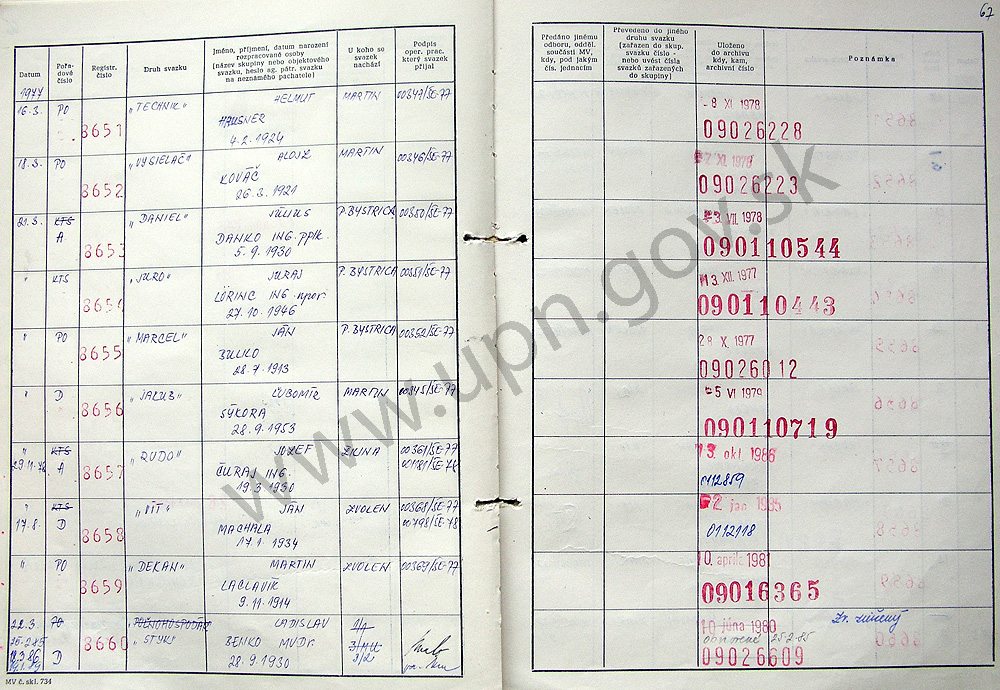 67
Datum
Pořa-
dové
číslo
Registr.
číslo
Druh svazku
Jméno, příjmení, datum narození
rozpracované osoby
(název skupiny nebo objektového
svazku, heslo ag. pátr. svazku
na neznámého pachatele)
U koho se
svazek
nachází
Podpis
oper. prac.
který svazek
přijal
Předáno jinému
odboru, odděl.
součásti MV,
kdy, pod jakým
čís. jednacím
Převedeno do jiného
druhu svazku
(zařazen do skup.
svazku číslo -
nebo uvést čísla
svazků zařazených
do skupiny)
Uloženo
do archivu
kdy, kam,
archivní číslo
Poznámka
1977
16.3. PO 8651 "TECHNIK" HELMUT MARTIN 00347/ŠE-77
HAUSNER
4.2.1924
-8 XI 1978
09026228
18.3. PO 8652 ALOJZ MARTIN 00346/ŠE-77
KOVÁČ
26.3.1921
XI. 1978
09026223
21.3. KTS 8653 "DANIEL" JÚLIUS P. BYSTRICA 00350/ŠE-77
A DANKO ING. pplk.
5.9.1930
3. VII. 1978
090110544
" KTS 8654 "JURO" JURAJ P. BYSTRICA 00351/ŠE-77
LÖRINC ING. npor.
27.10.1946
13. XII. 1977
090110443
" PO 8655 "MARCEL" JÁN P. BYSTRICA 00352/ŠE-77
28.7.1913
28 X 1977
09026012
" D 8656 "JAKUB" ĽUBOMÍR MARTIN 00345/ŠE-77
SÝKORA
28.9.1953
-5 VI 1979
090110719
" KTS 8657 "RUDO" JOZEF ŽILINA 00361/ŠE-77
A ČURAJ ING.
19.3.1930
13. okt. 1986
0112859
" KTS 8658 "VÍT" JÁN ZVOLEN 00368/ŠE-77
17.8. D MACHALA 00798/ŠE-78
17.1.1934
2 jan 1985
0112118
" PO 8659 "DEKAN" MARTIN ZVOLEN 00369/ŠE-77
LACLAVÍK
9.11.1914
10. apríla 1981
09016365
22.3. PO 8660 "POĽNOHOSPODÁR" LADISLAV
"STYK" BENKO MUDR.
D 28.9.1930
10. júna 1980
obnovené 25.2.85
09026609
Zv. zničený
MV č. skl. 734
www.upn.gov.sk